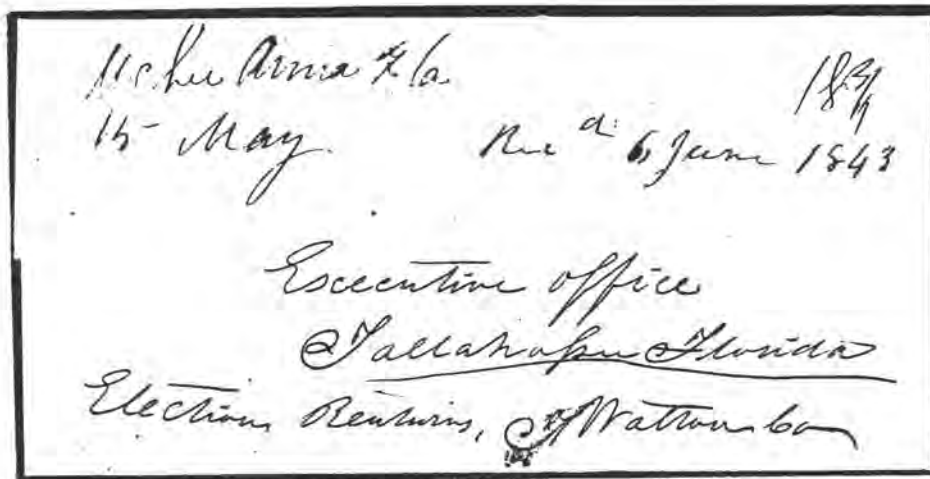 Uchee Anna Fla 18¾
15 May Rec d: 6, June 1843
Executive office
Tallahassee Florida
Election Returns, of Walton Co